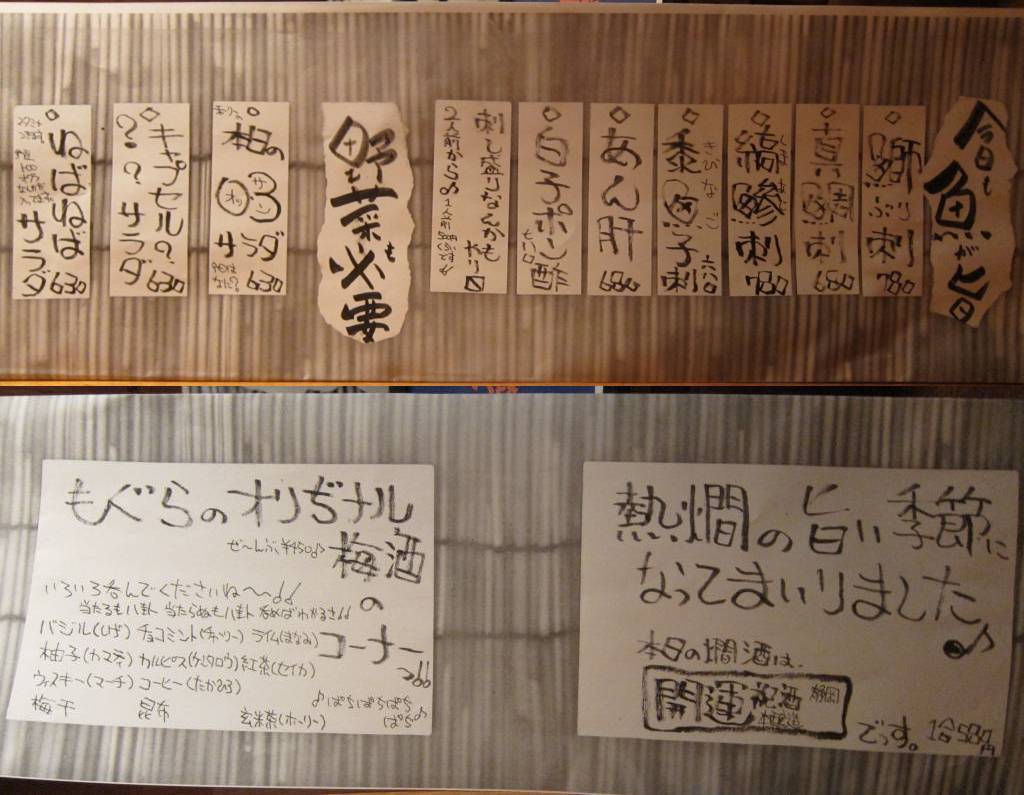 今日も
魚が旨
鰤
ぶり
刺
780
真鯛刺
680
縞鯵刺
780
黍魚子刺
きびなご
六八〇
あん肝
680
白子ポン酢
刺し盛りなんかも
有り〼
2人前から♪1人前
野菜も
必要
本日の
サラダ
630
今日は
なに?
キャプセル?
??サラダ
630
ねばねば
サラダ
630
もぐらのオリぢナル
梅酒
の
コーナー
ぜ〜んぶ¥450♪
いろいろ呑んでくださいね〜〜♪♪
当たるも八卦 当たらぬも八卦 呑めばわかるさ♪♪
バジル(ひげ) チョコミント(チャーリー) ライム(はなみ)
柚子(カマテ) カルピス(ケンタロウ) 紅茶(セイカ)
ウィスキー(マーチ) コーヒー(たかひろ)
梅干 昆布 玄米茶(ホーリー)
♪ぱちぱちぱち
ぱち♪
熱燗の旨い季節に
なってまいりました♪
本日の燗酒は、
開運 祝酒 静岡
本醸造
でっす。 1合580円